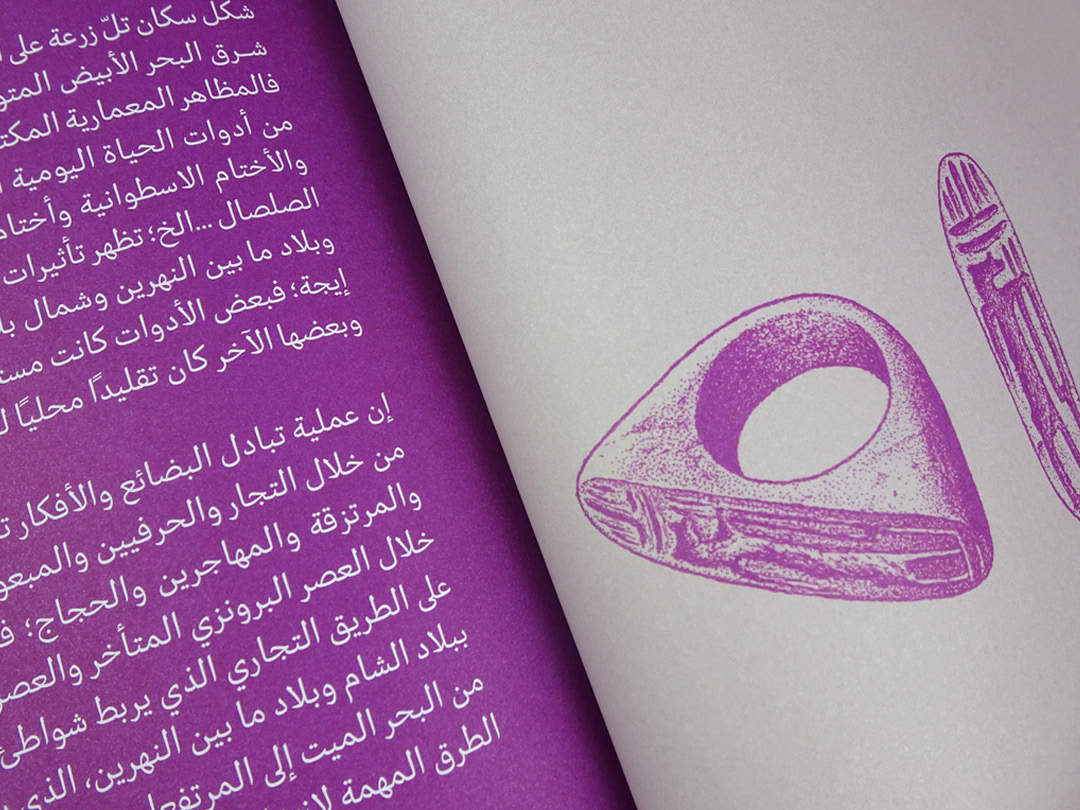 شكل سكان تلّ زرعة على
شرق البحر الأبيض
فالمظاهر المعمارية
من أدوات الحياة اليومية
والأختام الاسطوانية
الصلصال ...الخ؛ تظهر تأثيرات
وبلاد ما بين النهرين وشمال
إيجة؛ فبعض الأدوات كانت
وبعضها الآخر كان تقليدًا محليًا
إن عملية تبادل البضائع والأفكار
من خلال التجار والحرفيين
والمرتزقة والمهاجرين والحجاج؛
خلال العصر البرونزي المتأخر والعصر
على الطريق التجاري الذي يربط شواطئ
ببلاد الشام وبلاد ما بين النهرين، الذي
من البحر الميت إلى
الطرق المهمة